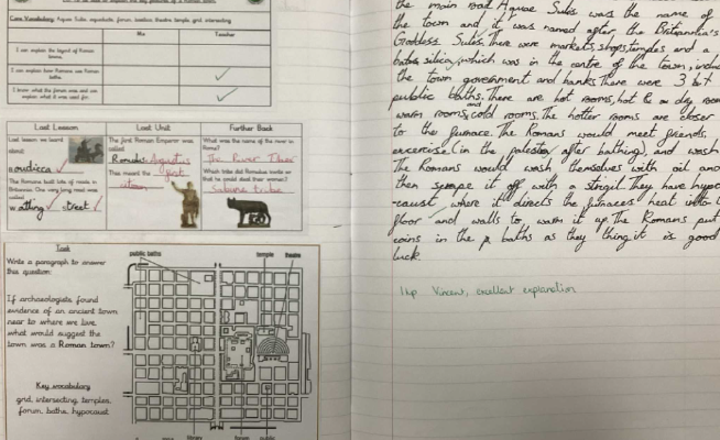 Core Vocabulary: Aquae Sulis, aqueducts, forum, basilica, theatre, temple, grid, intersecting
Me
Teacher
I can explain the layout of Roman towns.
I can explain how Romans use Roman baths.
I know what the forum was and can explain what it was used for.
Last Lesson
Last lesson we learnt about:
Boudicca
The Romans built lots of roads in Britannia. One very long road was called
Watling Street
Last Unit
The first Roman Emperor was called
Romulus Augustus
This meant the first
citizen
Further Back
What was the name of the river in Rome?
The River Tiber
Which tribe did Romulus invite so that he could steal their women?
Sabine tribe
Task
Write a paragraph to answer this question:
If archaeologists found evidence of an ancient town near to where we live, what would suggest the town was a Roman town?
Key vocabulary
grid, intersecting, temples, forum, baths, hypocaust
public baths
temple
theatre
library
forum
public
the main road. Aquae Sulis was the name of
the town and it was named after the Britannia's
Goddess Sulis. There were markets, shops, temples and a
basilica, which was in the centre of the town,
the town government and banks. There were 3
public baths. There are hot rooms, hot & dry room
warm rooms, and cold rooms. The hotter rooms are closer
to the furnace. The Romans would meet friends,
excercise (in the palestra after bathing), and wash
The Romans would wash themselves with oil and
then scrape it off with a strigil. They have hypo
-caust, where it directs the furnaces heat into
floor and walls to warm it up. The Romans put
coins in the baths as they thing it is good
luck.
1hp Vincent, excellent explanation